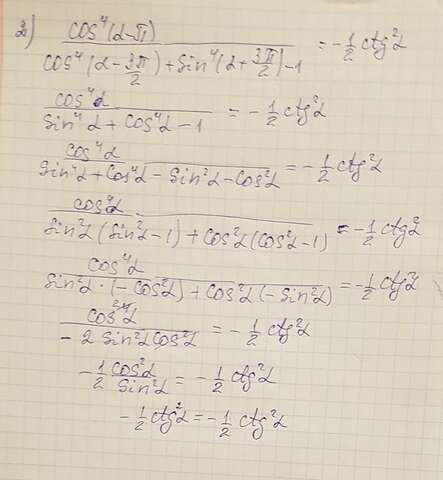 2) cos⁴(α-π) / (cos⁴(α-3π/2)+sin⁴(α+3π/2)-1) = -1/2 ctg²α
cos⁴α / (sin⁴α + cos⁴α - 1) = -1/2 ctg²α
cos⁴α / (sin⁴α + cos⁴α - sin²α - cos²α) = -1/2 ctg²α
cos⁴α / (sin²α(sin²α-1) + cos²α(cos²α-1)) = -1/2 ctg²α
cos⁴α / (sin²α·(-cos²α) + cos²α(-sin²α)) = -1/2 ctg²α
cos⁴α / (-2 sin²α cos²α) = -1/2 ctg²α
-1/2 cos²α / sin²α = -1/2 ctg²α
-1/2 ctg²α = -1/2 ctg²α